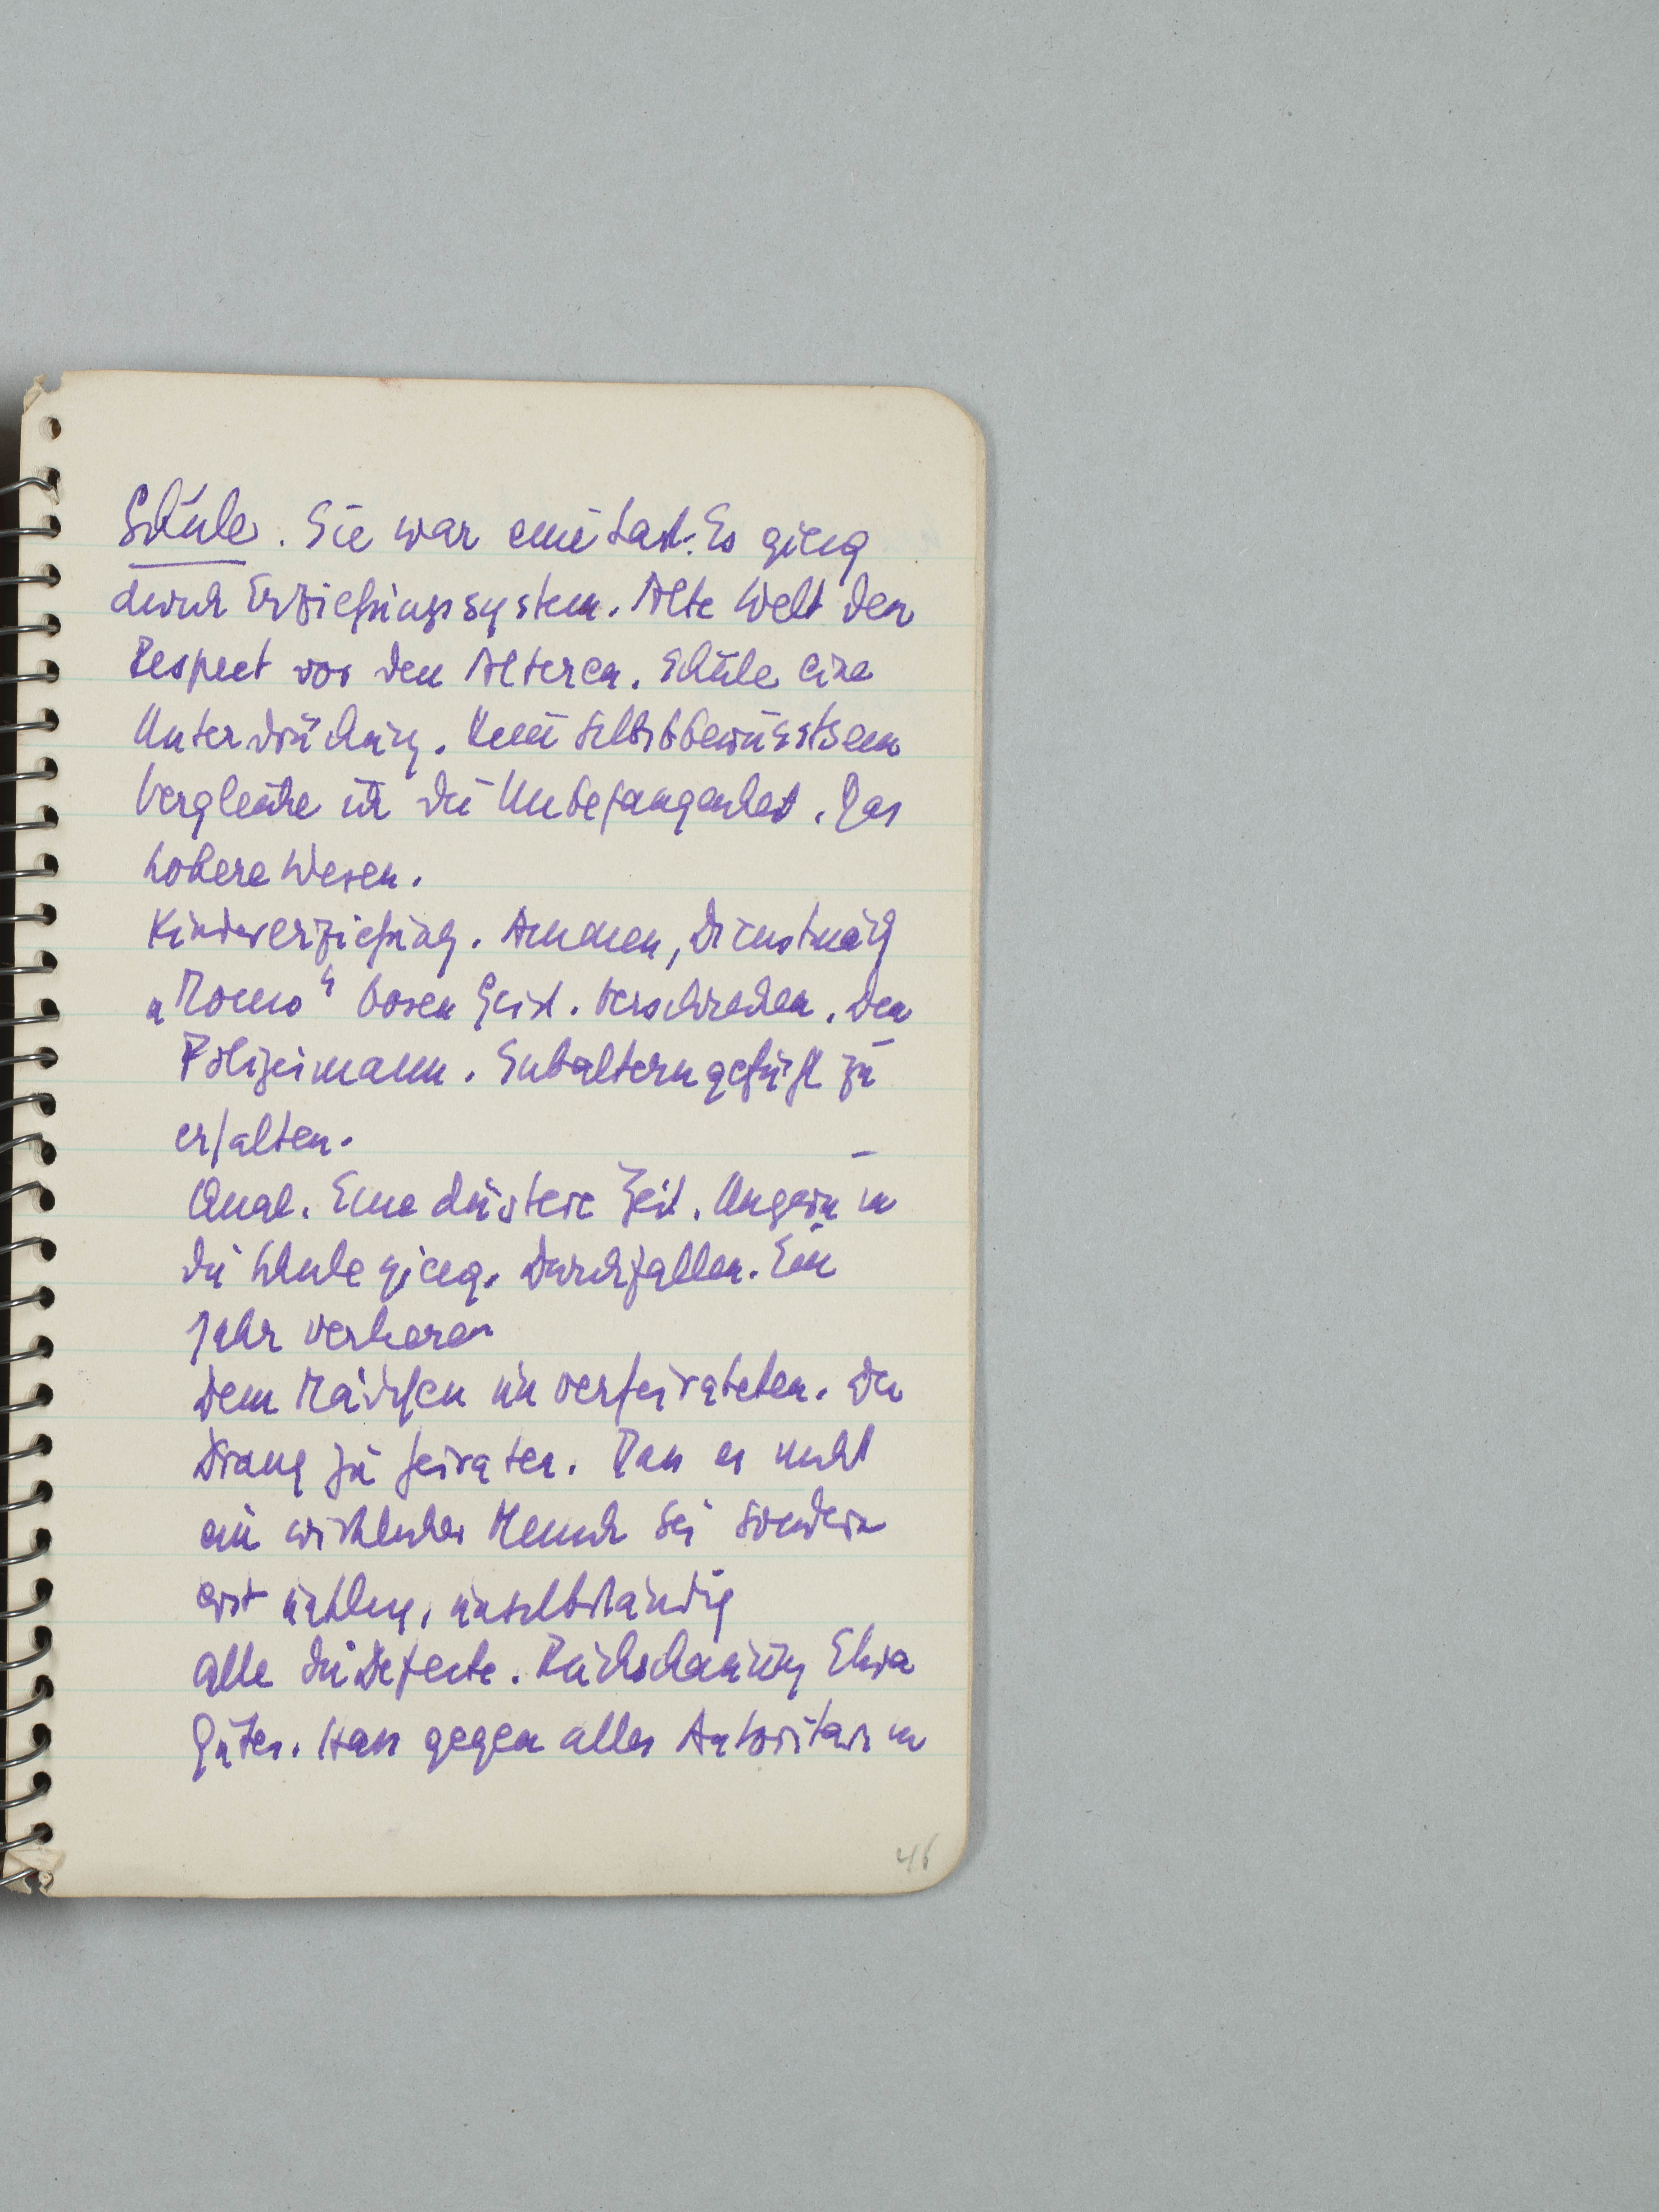 Schule. Sie war eine Last. Es gieng
durch Erziehungssystem. Alte Welt den
Respect vor den Älteren. Schule eine
Unterdrückung. Kein Selbstbewusstsein
Vergleiche für die Unbefangenheit. Das
höhere Wesen.
Kindererziehung. Ammen, Dienstmäd
„Momo“ bösen Geist. Verschrecken. Den
Polizeimann. Subalterngefühl zu
erhalten.
Qual. Eine düstere Zeit. Ungern in
die Schule gieng. Durchfallen. Ein
Jahr verloren
Dem Mädchen unverheirateten. Der
Drang zu heiraten. Dass er nicht
ein wirklicher Mensch sei sondern
erst unselbständig
alle die Defecte. Rückschauung Etwa
Gutes. Hass gegen alles Autoritäre in
46